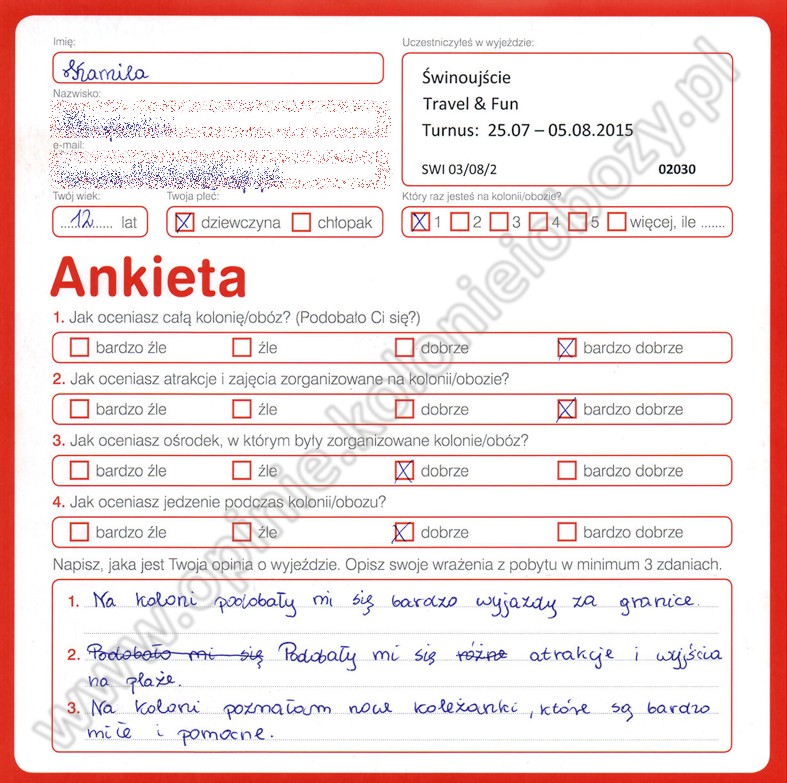 Imię:
Kamila
Nazwisko:
e-mail:
Twój wiek:
12 lat
Twoja płeć:
dziewczyna chłopak
Uczestniczyłeś w wyjeździe:
Świnoujście
Travel & Fun
Turnus: 25.07 – 05.08.2015
SWI 03/08/2 02030
Który raz jesteś na kolonii/obozie?
1 2 3 4 5 więcej, ile .......
Ankieta
1. Jak oceniasz całą kolonię/obóz? (Podobało Ci się?)
bardzo źle źle dobrze bardzo dobrze
2. Jak oceniasz atrakcje i zajęcia zorganizowane na kolonii/obozie?
bardzo źle źle dobrze bardzo dobrze
3. Jak oceniasz ośrodek, w którym były zorganizowane kolonie/obóz?
bardzo źle źle dobrze bardzo dobrze
4. Jak oceniasz jedzenie podczas kolonii/obozu?
bardzo źle źle dobrze bardzo dobrze
Napisz, jaka jest Twoja opinia o wyjeździe. Opisz swoje wrażenia z pobytu w minimum 3 zdaniach.
1. Na koloni podobały mi się bardzo wyjazdy za granice.
2. Podobało mi się Podobały mi się różne atrakcje i wyjścia
na plaże.
3. Na koloni poznałam nowe koleżanki, które są bardzo
miłe i pomocne.
www.opinie.kolonieiobozy.pl